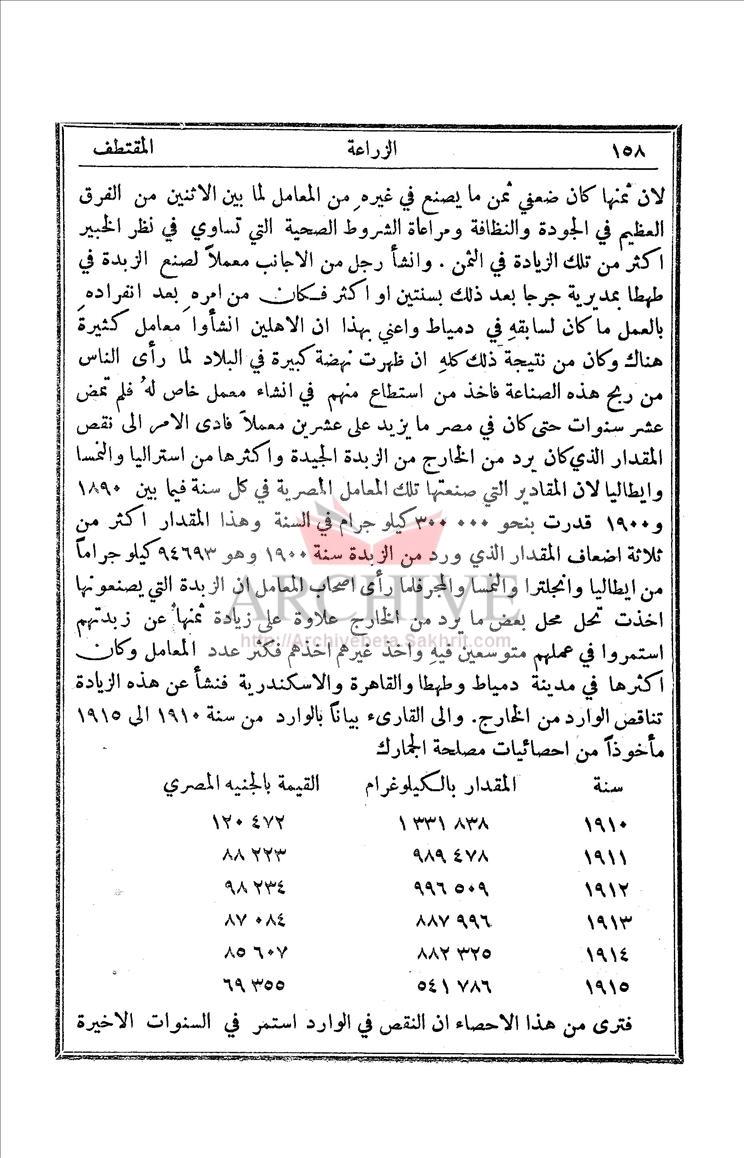 ١٥٨ الزراعة المقتطف
لان ثمنها كان ضعفي ثمن ما يصنع في غيره من المعامل لما بين الاثنين من الفرق
العظيم في الجودة والنظافة ومراعاة الشروط الصحية التي تساوي في نظر الخبير
اكثر من تلك الزيادة في الثمن . وانشأ رجل من الاجانب معملاً لصنع الزبدة في
طهطا بمديرية جرجا بعد ذلك بسنتين او اكثر فكان من امره بعد انفراده
بالعمل ما كان لسابقه في دمياط واعني بهذا ان الاهلين انشأوا معامل كثيرة
هناك وكان من نتيجة ذلك كله ان ظهرت نهضة كبيرة في البلاد لما رأى الناس
من ربح هذه الصناعة فاخذ من استطاع منهم في انشاء معمل خاص لهُ فلم تمض
عشر سنوات حتى كان في مصر ما يزيد على عشرين معملاً فادى الامر الى نقص
المقدار الذي كان يرد من الخارج من الزبدة الجيدة واكثرها من استراليا والنمسا
وايطاليا لان المقادير التي صنعتها تلك المعامل المصرية في كل سنة فيما بين ١٨٩٠
و١٩٠٠ قدرت بنحو ٣٠٠ ٠٠٠ كيلو جرام في السنة وهذا المقدار اكثر من
ثلاثة اضعاف المقدار الذي ورد من الزبدة سنة ١٩٠٠ وهو ٩٤٦٩٣ كيلو جراماً
من ايطاليا وانجلترا والنمسا والمجر فلما رأى اصحاب المعامل ان الزبدة التي يصنعونها
اخذت تحل محل بعض ما يرد من الخارج علاوة على زيادة ثمنها عن زبدتهم
استمروا في عملهم متوسعين فيه واخذ غيرهم اخذهم فكثر عدد المعامل وكان
اكثرها في مدينة دمياط وطهطا والقاهرة والاسكندرية فنشأ عن هذه الزيادة
تناقص الوارد من الخارج. والى القارىء بياناً بالوارد من سنة ١٩١٠ الى ١٩١٥
مأخوذاً من احصائيات مصلحة الجمارك
سنة المقدار بالكيلوغرام القيمة بالجنيه المصري
١٩١٠ ١ ٣٣١ ٨٣٨ ١٢٠ ٤٧٢
١٩١١ ٩٨٩ ٤٧٨ ٨٨ ٢٢٣
١٩١٢ ٩٩٦ ٥٠٩ ٩٨ ٢٣٤
١٩١٣ ٨٨٧ ٩٩٦ ٨٧ ٠٨٤
١٩١٤ ٨٨٢ ٣٢٥ ٨٥ ٦٠٧
١٩١٥ ٥٤١ ٧٨٦ ٦٩ ٣٥٥
فترى من هذا الاحصاء ان النقص في الوارد استمر في السنوات الاخيرة
ARCHIVE
http://Archivebeta.Sakhrit.com